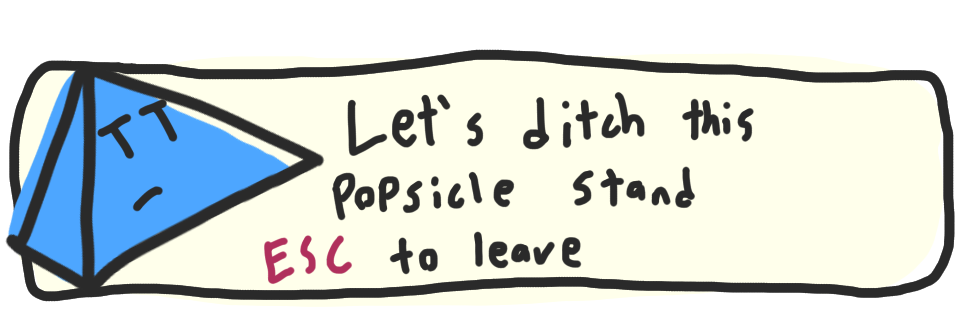 Let's ditch this
popsicle stand
ESC to leave